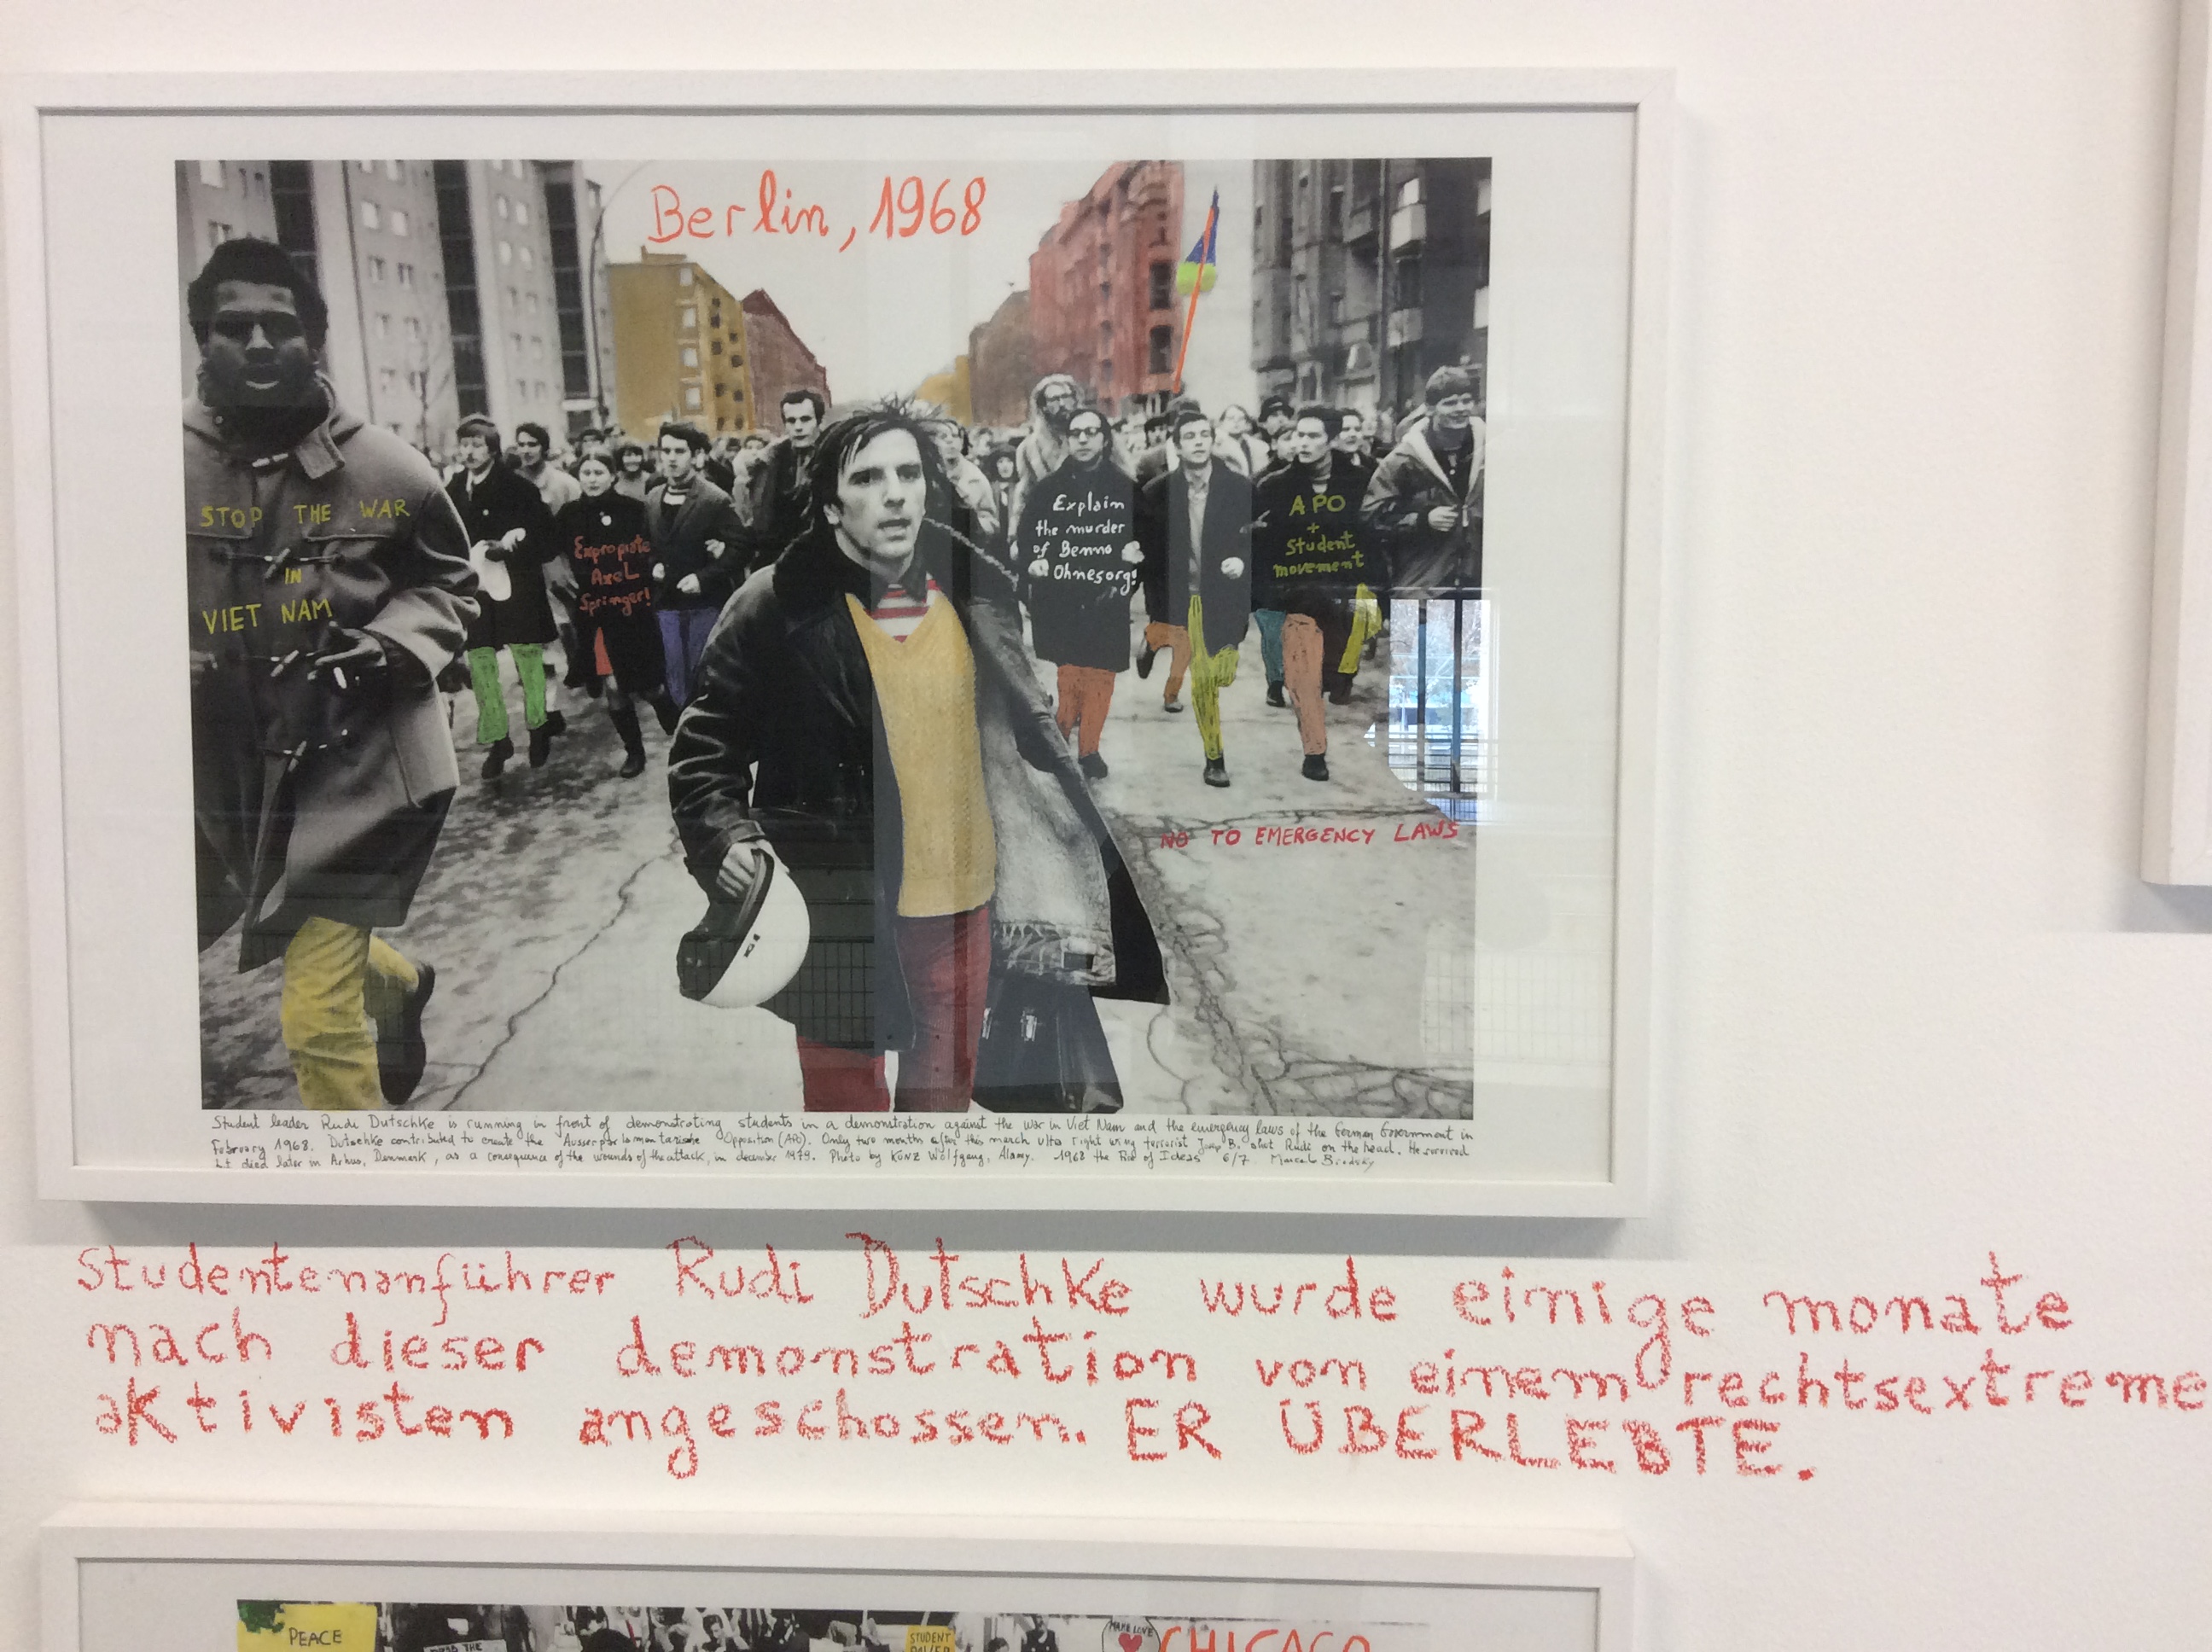 Berlin, 1968
STOP THE WAR
IN
VIET NAM
Expropiate
Axel
Springer!
Explain
the murder
of Benno
Ohnesorg!
APO
+
Student
movement
NO TO EMERGENCY LAWS
Student leader Rudi Dutschke is running in front of demonstrating students in a demonstration against the war in Viet Nam and the emergency laws of the German Government in
February 1968. Dutschke contributed to create the Ausserparlamentarische Opposition (APO). Only two months after this march ultra right wing terrorist B. shot Rudi on the head. He survived
died later in Arhus, Denmark, as a consequence of the wounds of the attack, in december 1979. Photo by Kunz Wolfgang, Alamy. 1968 the Fire of Ideas 6/7 Marcelo Brodsky
Studentenanführer Rudi Dutschke wurde einige monate
nach dieser demonstration von einem rechtsextreme
aktivisten angeschossen. ER ÜBERLEBTE.
PEACE
THE
STUDENT
POWER
MAKE LOVE
CHICAGO